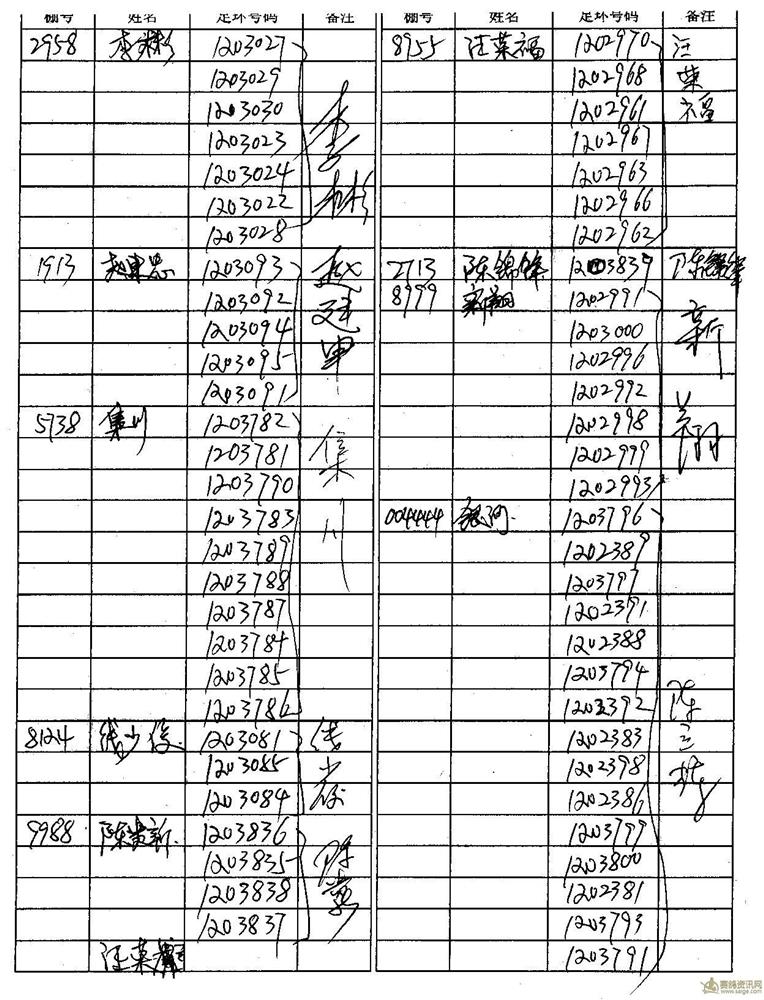 棚号 姓名 足环号码 备注
2958 1203027
1203029
1203030
1203023
1203024
1203022
1203028
1913 1203093
1203092
1203094
1203095
1203091
5738 集川 1203782 集川
1203781
1203790
1203783
1203789
1203788
1203787
1203784
1203785
1203786
8124 钱少俊 1203081
1203085
1203084
9988 陈黄新 1203836
1203835
1203838
1203837
汪荣福
棚号 姓名 足环号码 备注
8955 汪荣福 1202970 汪荣福
1202968
1202961
1202967
1202963
1202966
1202962
2713 陈锦锋 1203839 陈锦锋
8999 新翔 1202991 新翔
1203000
1202996
1202992
1202998
1202999
1202993
004444 银河 1203796
1202389
1203797
1202391
1202388
1203794
1202392
1202383
1202398
1202386
1203799
1203800
1202381
1203793
1203791
赛鸽资讯网
www.saige.com